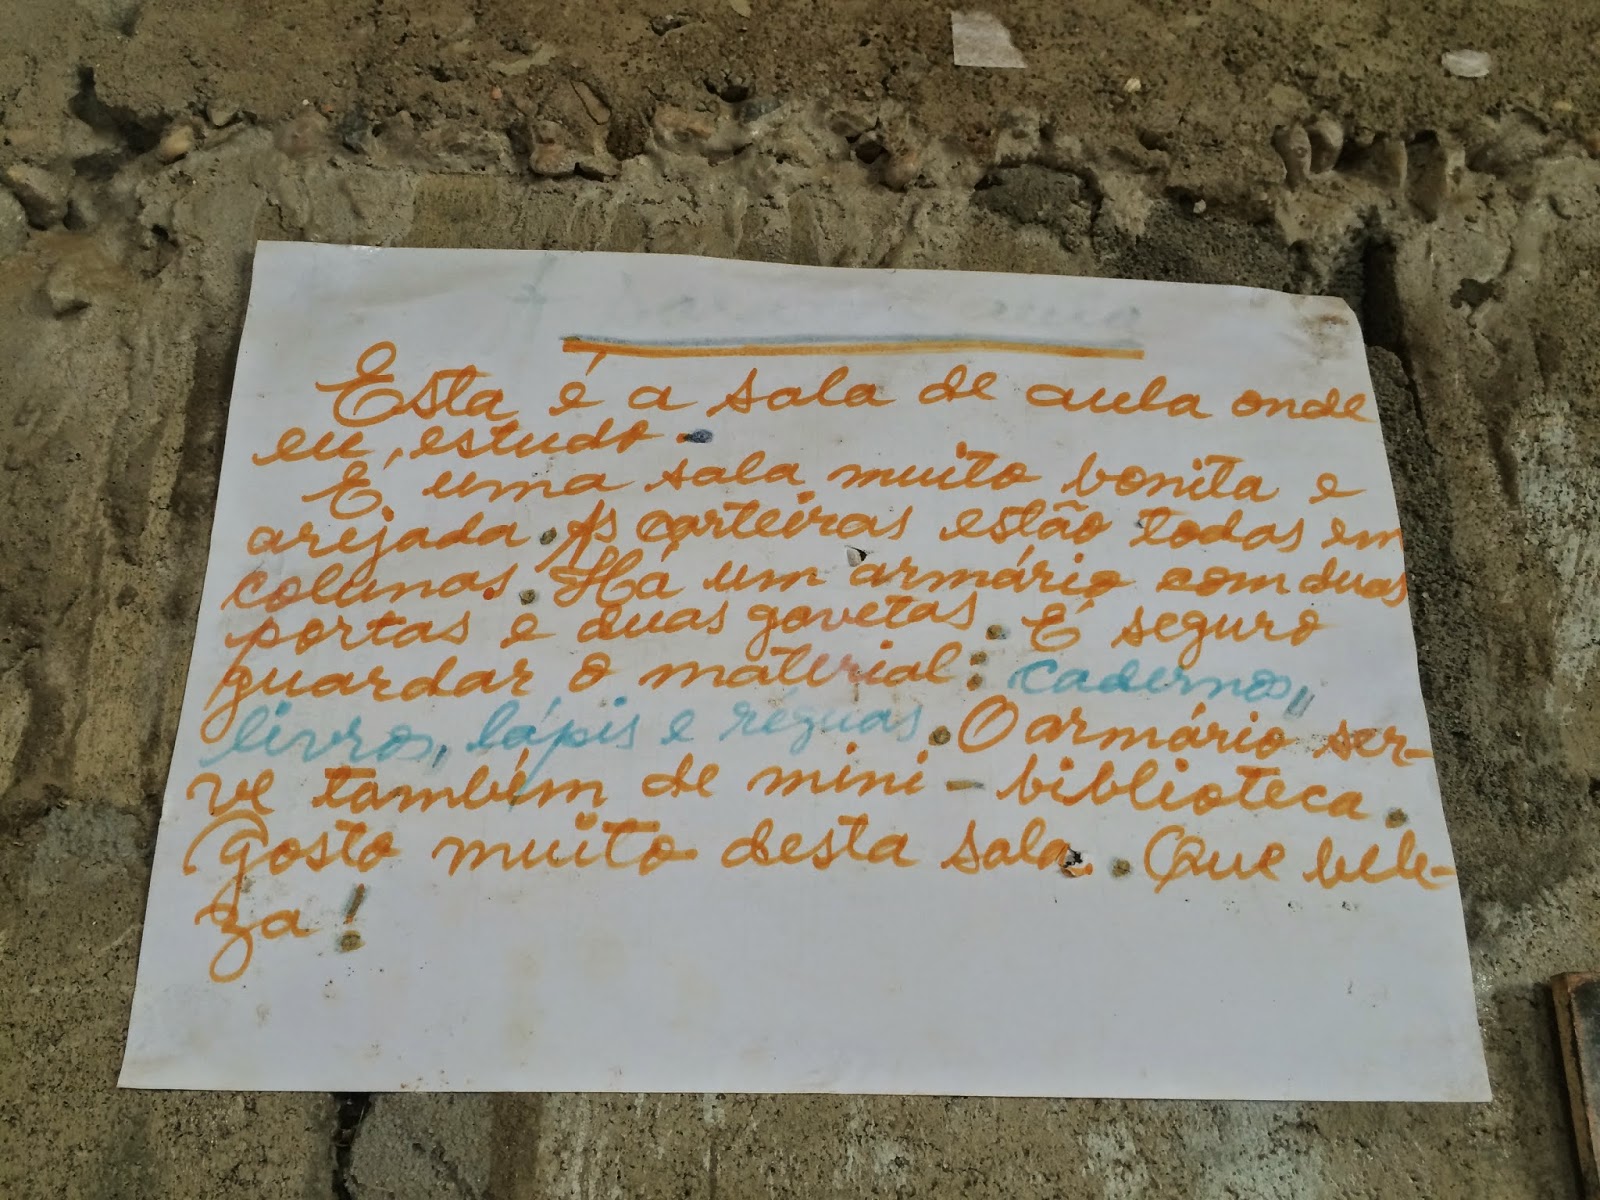 Esta é a sala de aula onde
eu, estudo.
É uma sala muito bonita e
arejada. As carteiras estão todas em
colunas. Há um armário com duas
portas e duas gavetas. É seguro
guardar o material: cadernos,
livros, lápis e réguas. O armário ser-
ve também de mini-biblioteca.
Gosto muito desta sala. Que bele-
za!